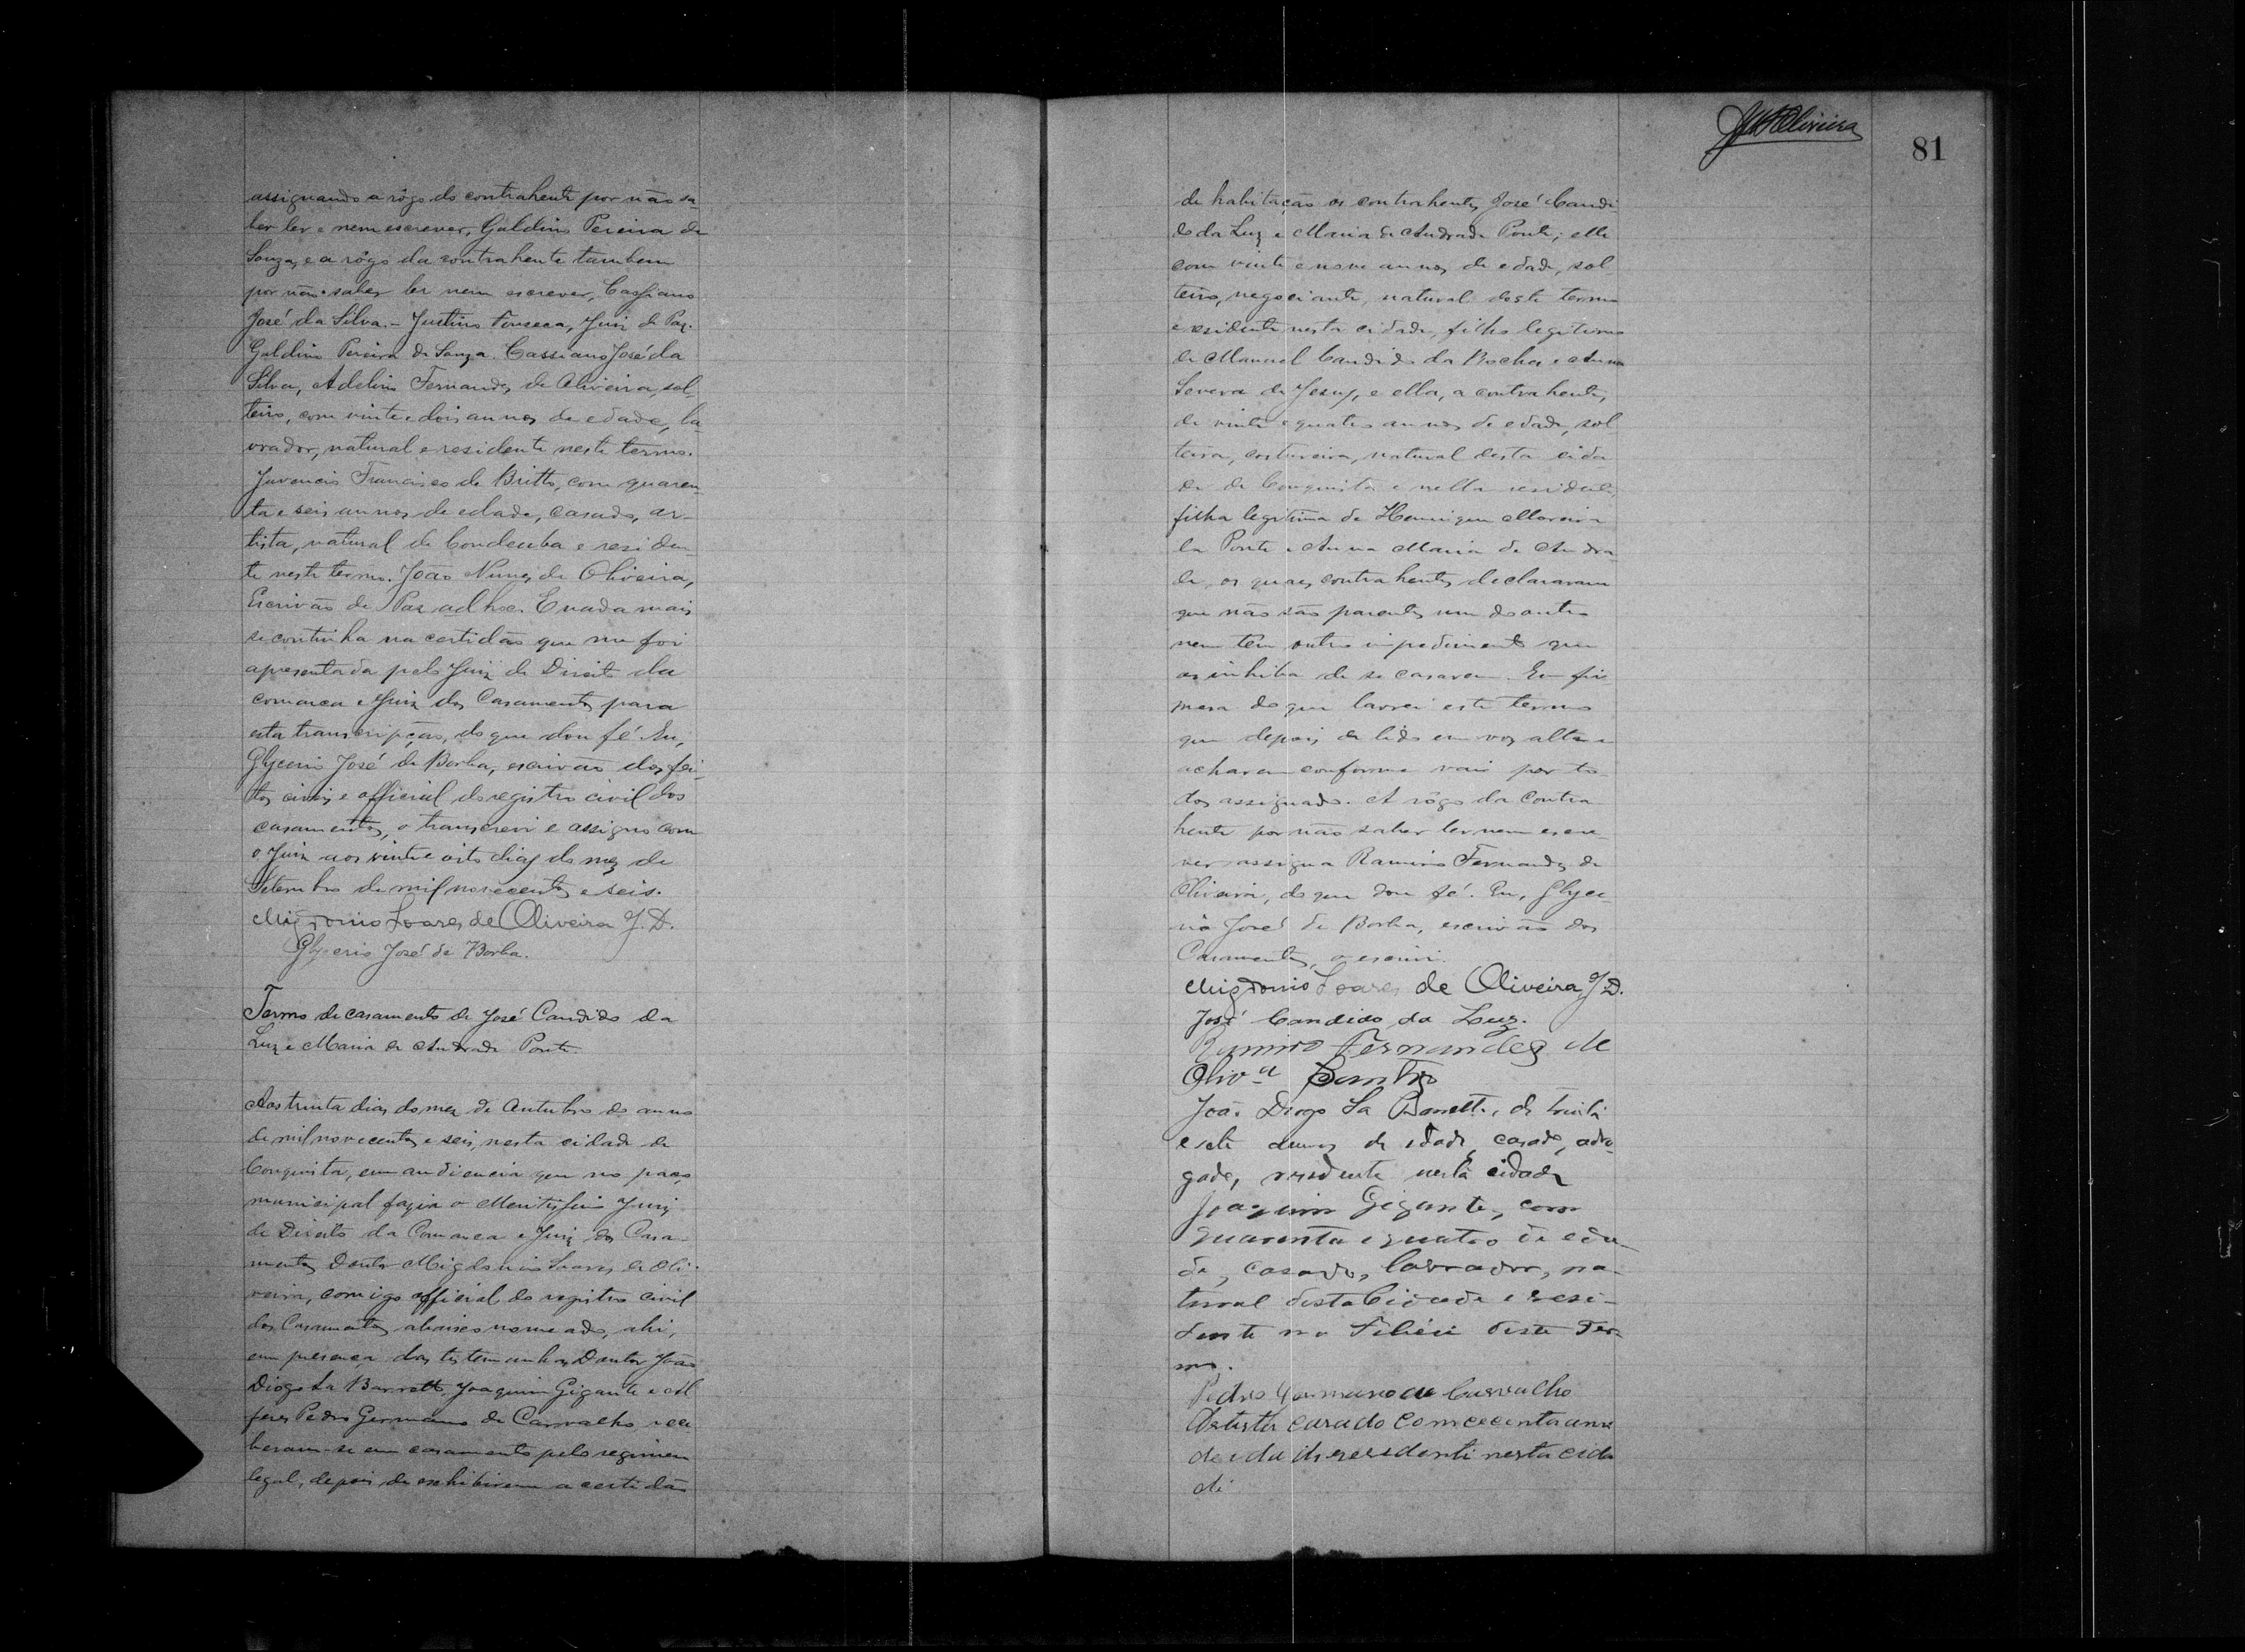 assignando a rôgo do contrahente por não sa-
ber ler e nem escrever, Galdino Pereira de
Souza, e a rôgo da contrahente tambem
por não saber ler nem escrever, Cassiano
José da Silva. - Justino Fonseca, Juiz de Paz.
Galdino Pereira de Souza. Cassiano José da
Silva, Adelino Fernandes de Oliveira, sol-
teiro, com vinte e dois annos de edade, la-
vrador, natural e residente neste termo.
Juvencio Francisco de Britto, com quaren-
ta e seis annos de edade, casado, ar-
tista, natural de Condeuba e residen
te neste termo. João Nunes de Oliveira,
Escrivão de Paz ad hoc. E nada mais
se continha na certidão que me foi
apresentada pelo Juiz de Direito da
comarca e Juiz dos Casamentos para
esta transcripção, do que dou fé. Eu,
Glycerio José de Borba, escrivão dos fei-
tos civeis e official do registro civil dos
casamentos, o transcrevi e assigno com
o Juiz aos vinte e oito dias do mez de
Setembro de mil novecentos e seis.
Migdonio Soares de Oliveira J. D.
Glycerio José de Borba.
Termo de casamento de José Candido da
Luz e Maria de Andrade Ponte.
Aos trinta dias do mez de Outubro do anno
de mil novecentos e seis, nesta cidade de
Conquista, em audiencia que no paço
municipal fazia o Meritissimo Juiz
de Direito da Comarca e Juiz dos Casa-
mentos Doutor Migdonio Soares de Oli-
veira, comigo official do registro civil
dos Casamentos abaixo nomeado, ahi,
em presença das testemunhas Doutor João
Diogo Sá Barretto, Joaquim Gigante e Al
feres Pedro Germano de Carvalho rece
beram-se em casamento pelo regimen
legal, depois de exhibirem a certidão
81
de habitação os contrahentes José Candi
do da Luz e Maria de Andrade Ponte; elle
com vinte e nove annos de edade, sol
teiro, negociante, natural deste termo
e residente nesta cidade, filho legitimo
de Manoel Candido da Rocha e Anna
Severa de Jesus, e ella, a contrahente,
de vinte e quatro annos de edade, sol
teira, costureira, natural desta cida
de de Conquista e nella residente,
filha legitima de Henrique Moreira
da Ponte e Anna Maria de Andra
de, os quaes contrahentes declararam
que não são parentes um do outro
nem tem outro impedimento que
os inhiba de se casarem. Em fir
meza do que lavrei este termo
que depois de lido em voz alta e
acharem conforme vai por to
dos assignado. A rôgo da contra
hente por não saber ler nem escre
ver assigna Ramiro Fernandes de
Oliveira, do que dou fé. Eu, Glyce
rio José de Borba, escrivão dos
Casamentos, o escrevi.
Migdonio Soares de Oliveira J. D.
José Candido da Luz.
Ramiro Fernandes de
Olivª
João Diogo Sá Barretto, de trinta
e sete annos de idade, casado, advo-
gado, residente nesta cidade
Joaquim Gigante, com
quarenta e quatro de eda
de, casado, lavrador, na-
tural desta Cidade e resi-
dente no deste Ter-
mo.
Pedro Germano de Carvalho
Artista casado com cecenta anno
de idade residenti nesta cida
di